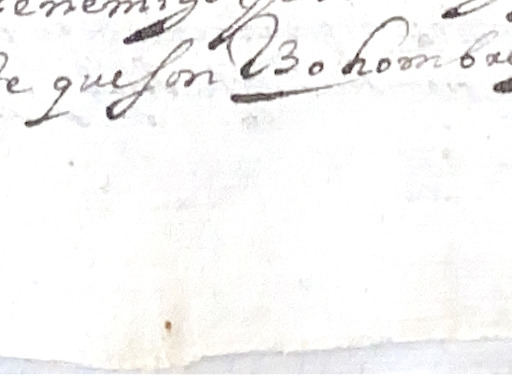 enemigo
de que son 230 hombre